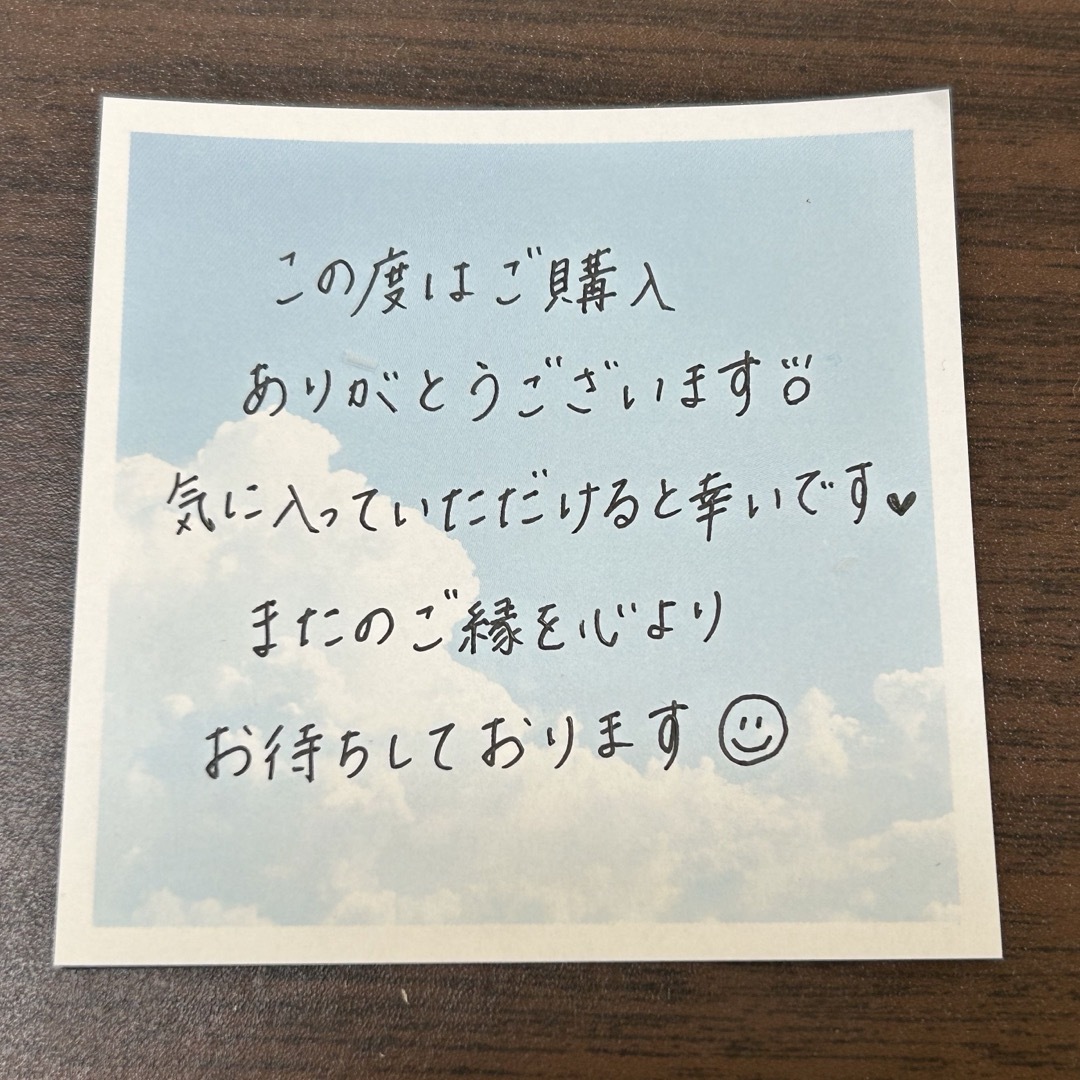 この度はご購入
ありがとうございます
気に入っていただけると幸いです♥
またのご縁を心より
お待ちしております☺